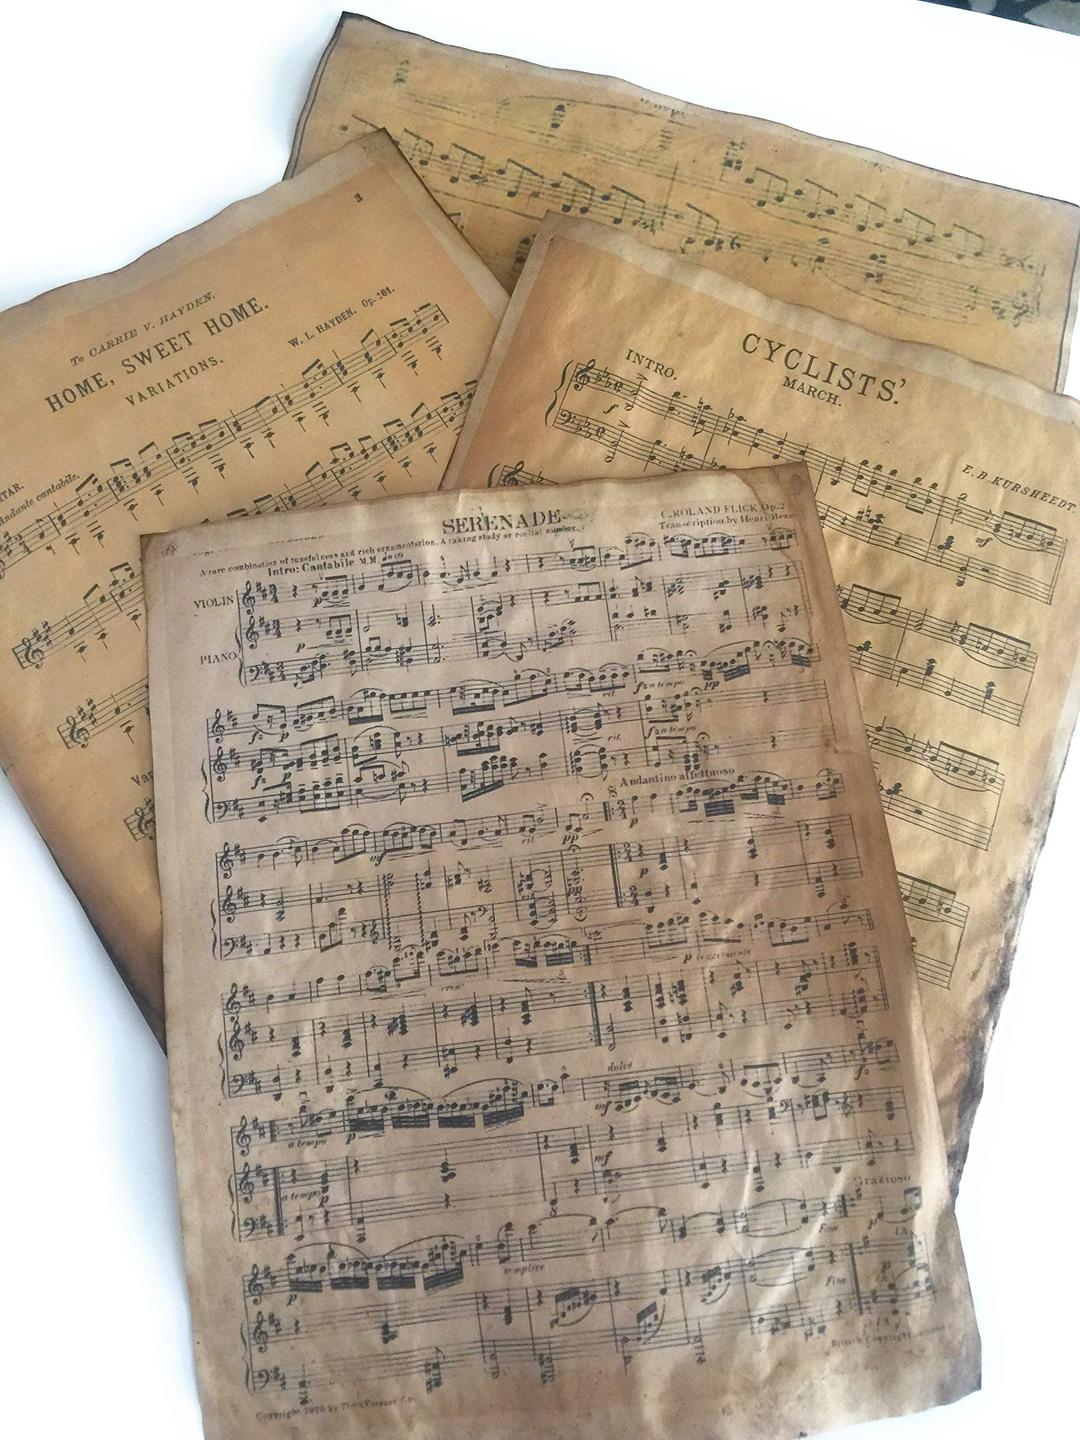 3
To CARRIE V. HAYDEN.
HOME, SWEET HOME.
VARIATIONS.
W. L. HAYDEN. Op. 161.
Andante cantabile.
CYCLISTS'
MARCH.
INTRO.
E. B. KURSHEEDT.
f
mf
SERENADE
C. ROLAND FLICK, Op. 2
Transcription by Henri
A rare combination of tunefulness and rich ornamentation. A taking study or recital number.
Intro: Cantabile M.M.
VIOLIN
p
PIANO
p
rit. fz a tempo pp
fz p
rit. fz a tempo
fz
Andantino affettuoso
mf rit. pp p
p
p leggermente
cresc
dolce
a tempo p mf f
mf
a tempo p
Grazioso
Fine p
p semplice
Fine
Copyright by Theo. Presser Co.
British Copyright